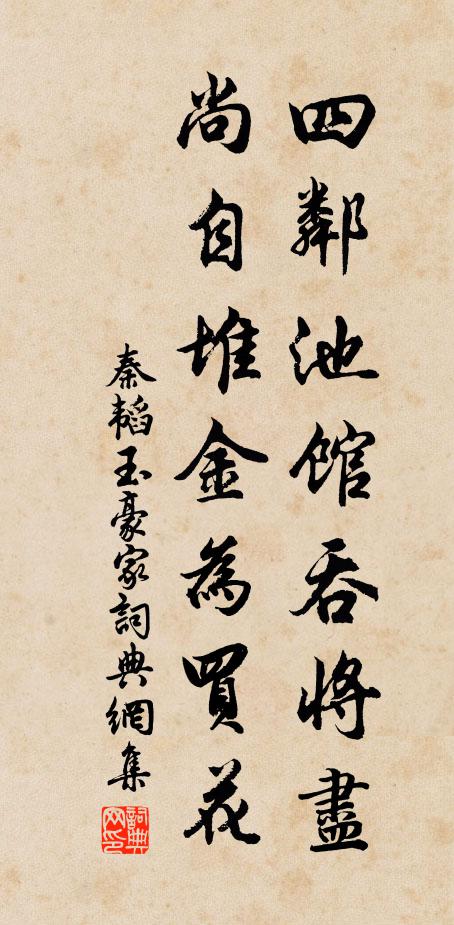 四鄰池館吞將盡
尚自堆金為買花
秦韜玉豪家詞典網集
詞典网印